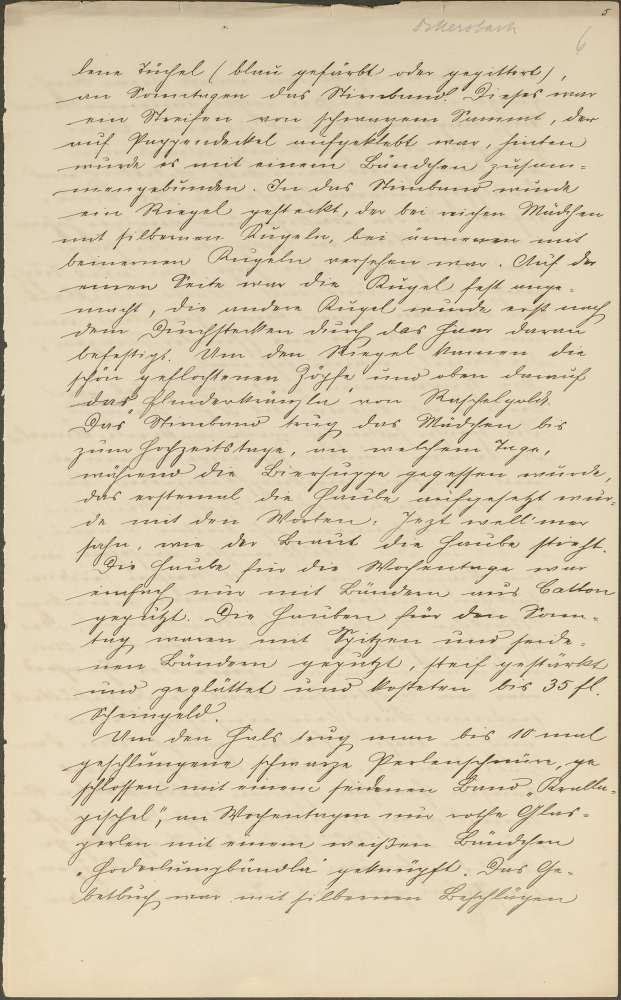 5
6
lene Tüchel (blau gefärbt oder gegittert),
an Sonntagen das Stirnband. Dieses war
ein Streifen von schwarzem Sammt, der
auf Pappendeckel aufgeklebt war, hinten
wurde es mit einem Bändchen zusam-
mengebunden. In das Stirnband wurde
ein Riegel gesteckt, der bei reichen Mädchen
mit silbernen Kugeln, bei ärmeren mit
beinernen Kugeln versehen war. Auf der
einen Seite war die Kugel fest ange-
macht, die andere Kugel wurde erst nach
dem Durchstecken durch das Haar daran
befestigt. Um den Riegel kamen die
schön geflochtenen Zöpfe und oben darauf
das Flinderkränzla von Raschelgold.
Das Stirnband trug das Mädchen bis
zum Hochzeitstage, an welchem Tage,
während die Biersuppe gegessen wurde,
das erstemal die Haube aufgesetzt wur-
de mit den Worten: Jezt woll mer
sahn, wie der Braut die Haube stieht.
Die Haube für die Wochentage war
einfach nur mit Bändern aus Catton
geputzt. Die Hauben für den Sonn-
tag waren mit Spitzen und seide-
nen Bändern geputzt, steif gestärkt
und geglättet und kosteten bis 35 fl.
Scheingeld.
Um den Hals trug man bis 10 mal
geschlungene schwarze Perlenschnüre, ge
schlossen mit einem seidenen Band „Kralla-
zischel", an Wochentagen nur rothe Glas-
perlen mit einem weißen Bändchen
geknüpft. Das Ge-
betbuch war mit silbernen Beschlägen